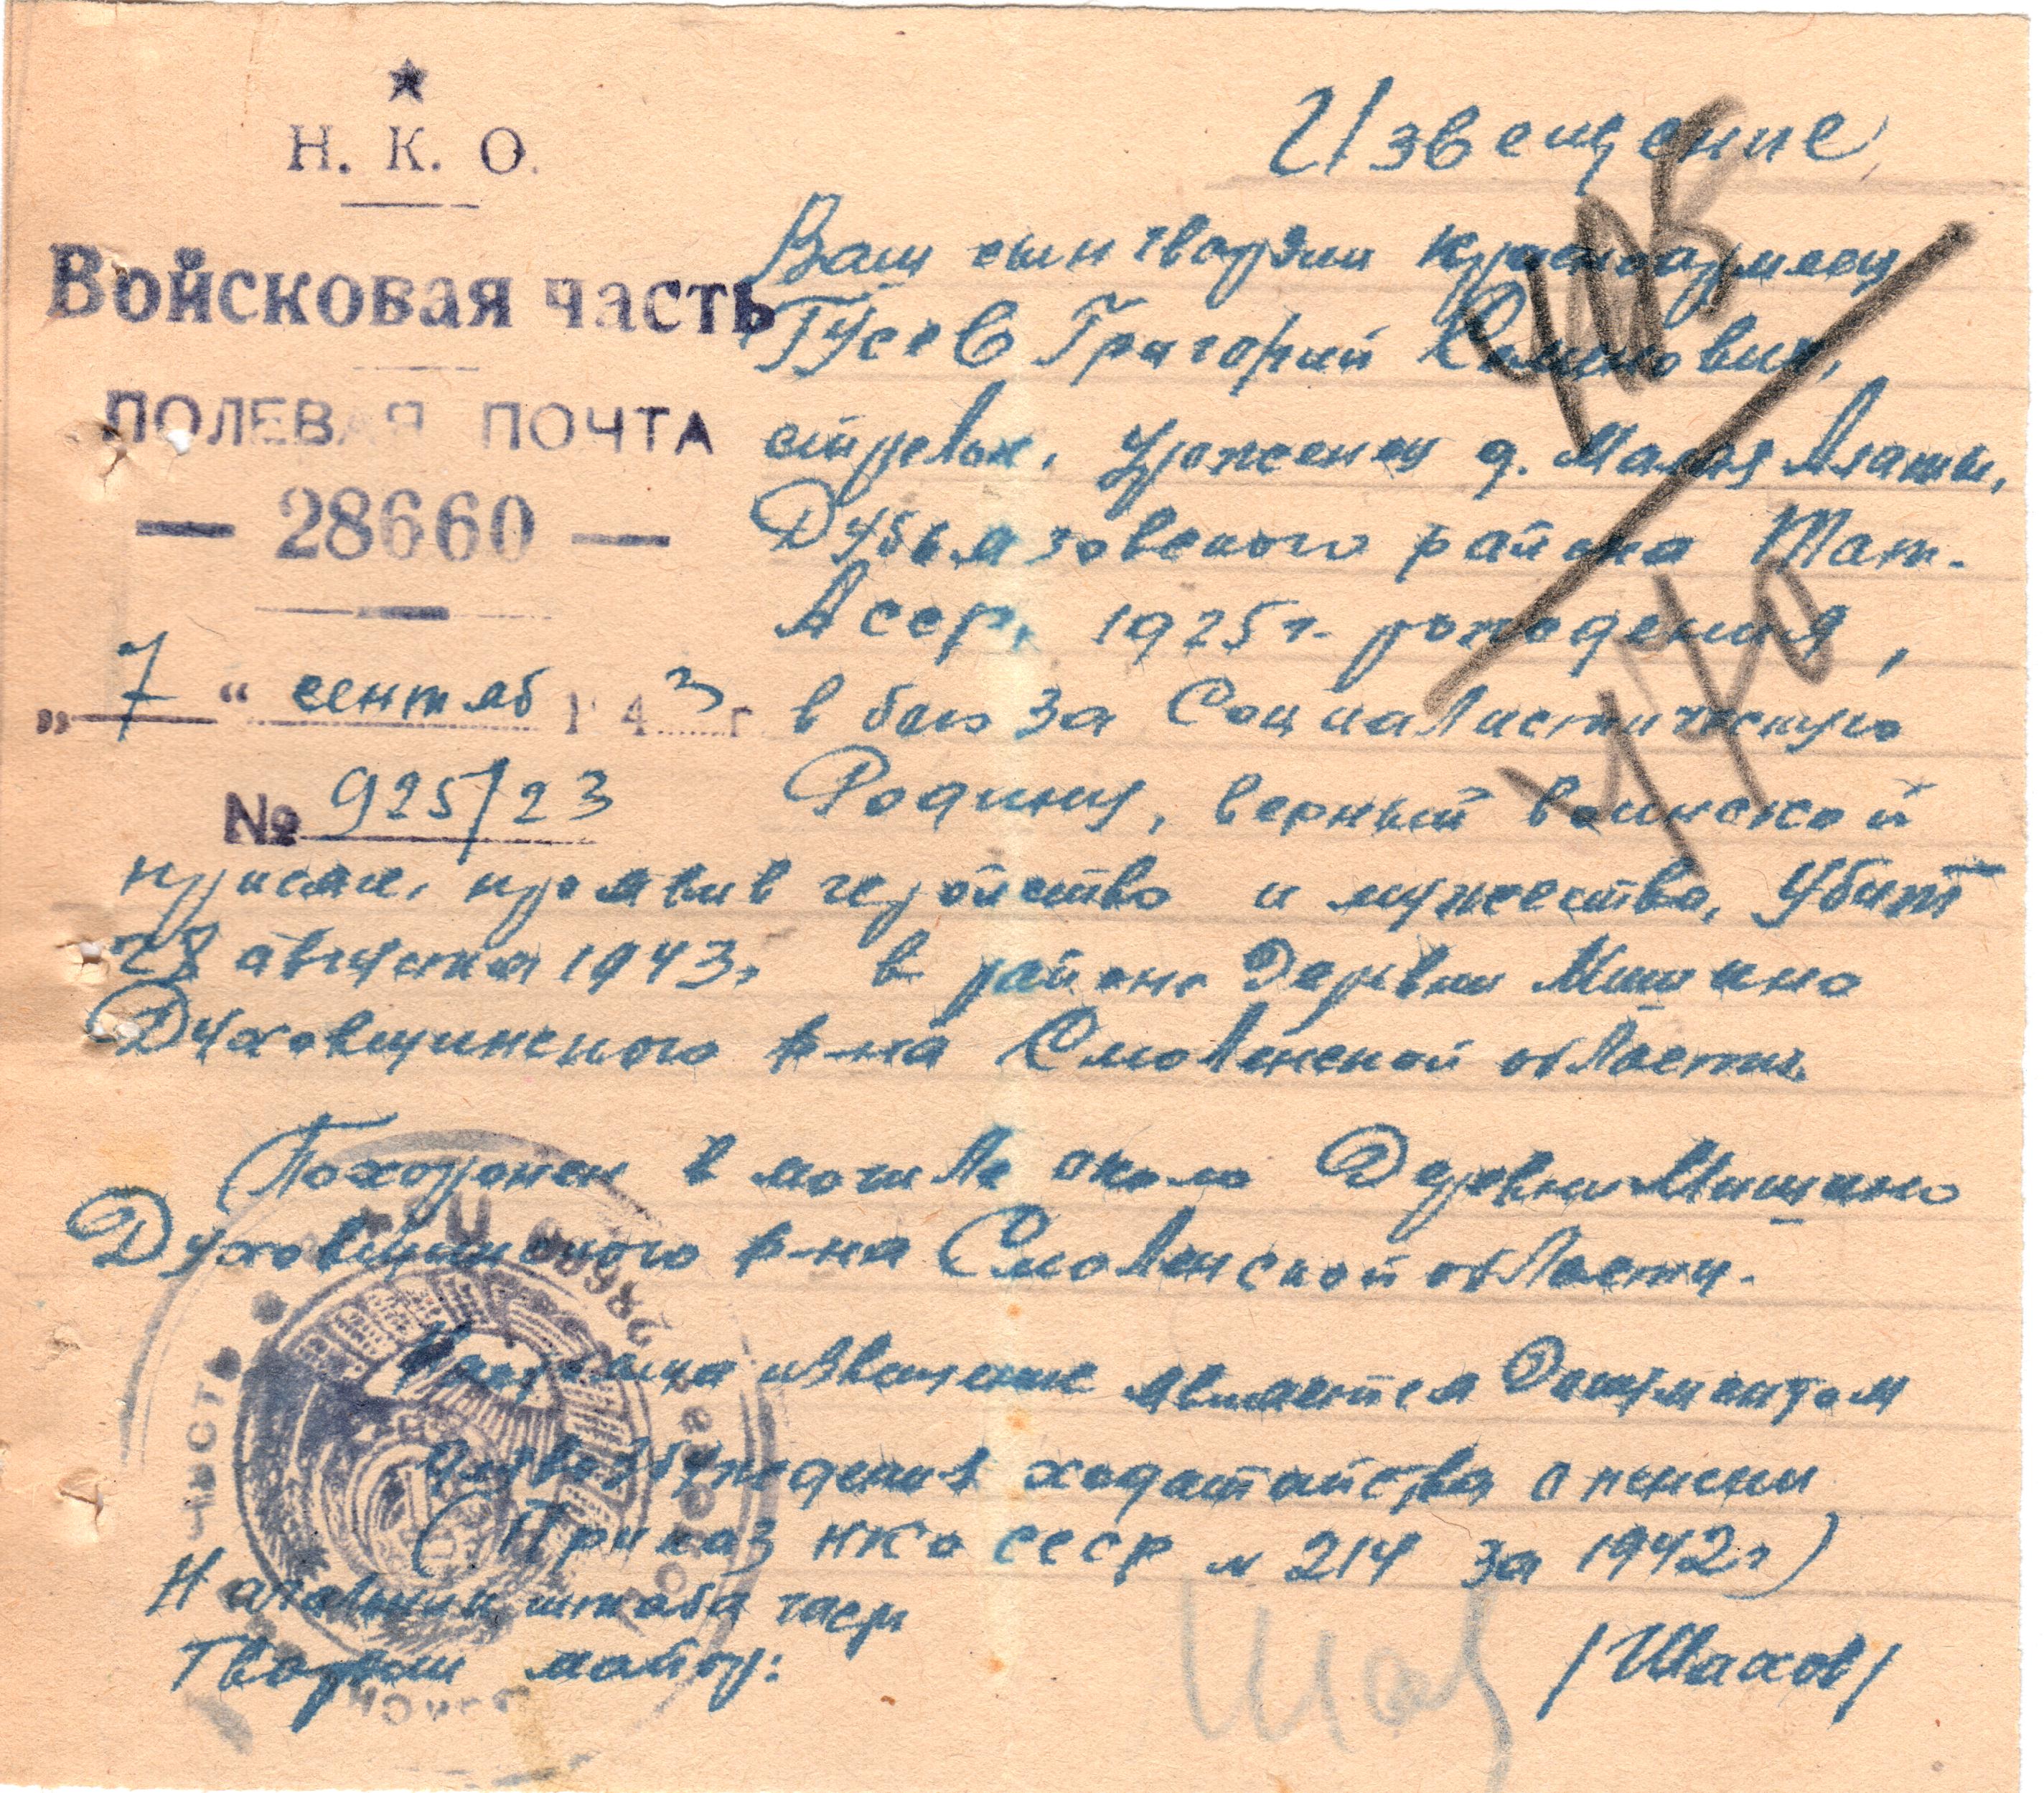 Н. К. О.
Войсковая часть
ПОЛЕВАЯ ПОЧТА
— 28660 —
„ 7 “ сентяб 194 3 г.
№ 925/23
Извещение
Ваш сын гвардии красноармеец
Гусев Григорий
стрелок, уроженец д. Малая
Дубъязовского района Тат.
Асср, 1925 г. рождения,
в бою за Социалистическую
Родину, верный воинской
присяге, проявив геройство и мужество, убит
28 августа 1943 г. в районе деревни
Духовщинского р-на Смоленской области
Похоронен в могиле около Деревни
Духовщинского р-на Смоленской области.
Настояще извещение является Документом
для возбуждения ходатайства о пенсии
(Приказ НКО СССР № 214 за 1942 г)
Начальник штаба части
Гвардии майор:
/Шахов/
Шах
28660
ЧАСТЬ